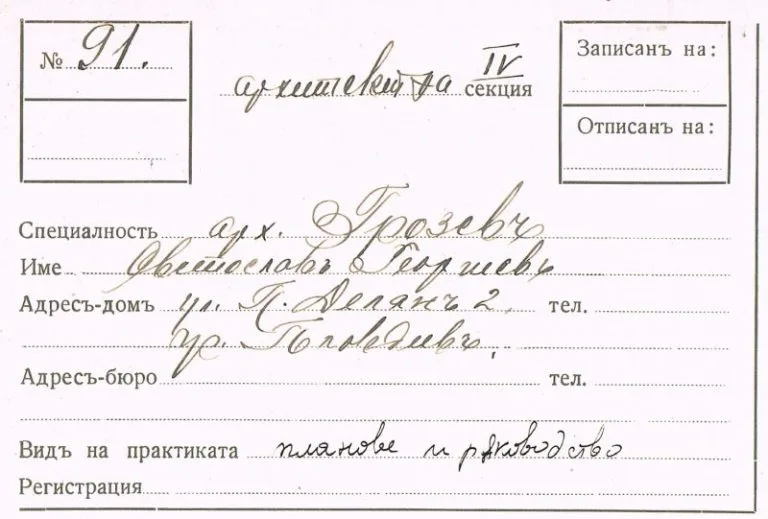 № 91.
архитектура IV секция
Записанъ на:
Отписанъ на:
Специалность арх. Грозевъ
Име Светославъ Георгиевъ
Адресъ-домъ ул. П. Делянъ 2 тел.
гр. Пловдивъ
Адресъ-бюро тел.
Видъ на практиката планове и рѫководство
Регистрация